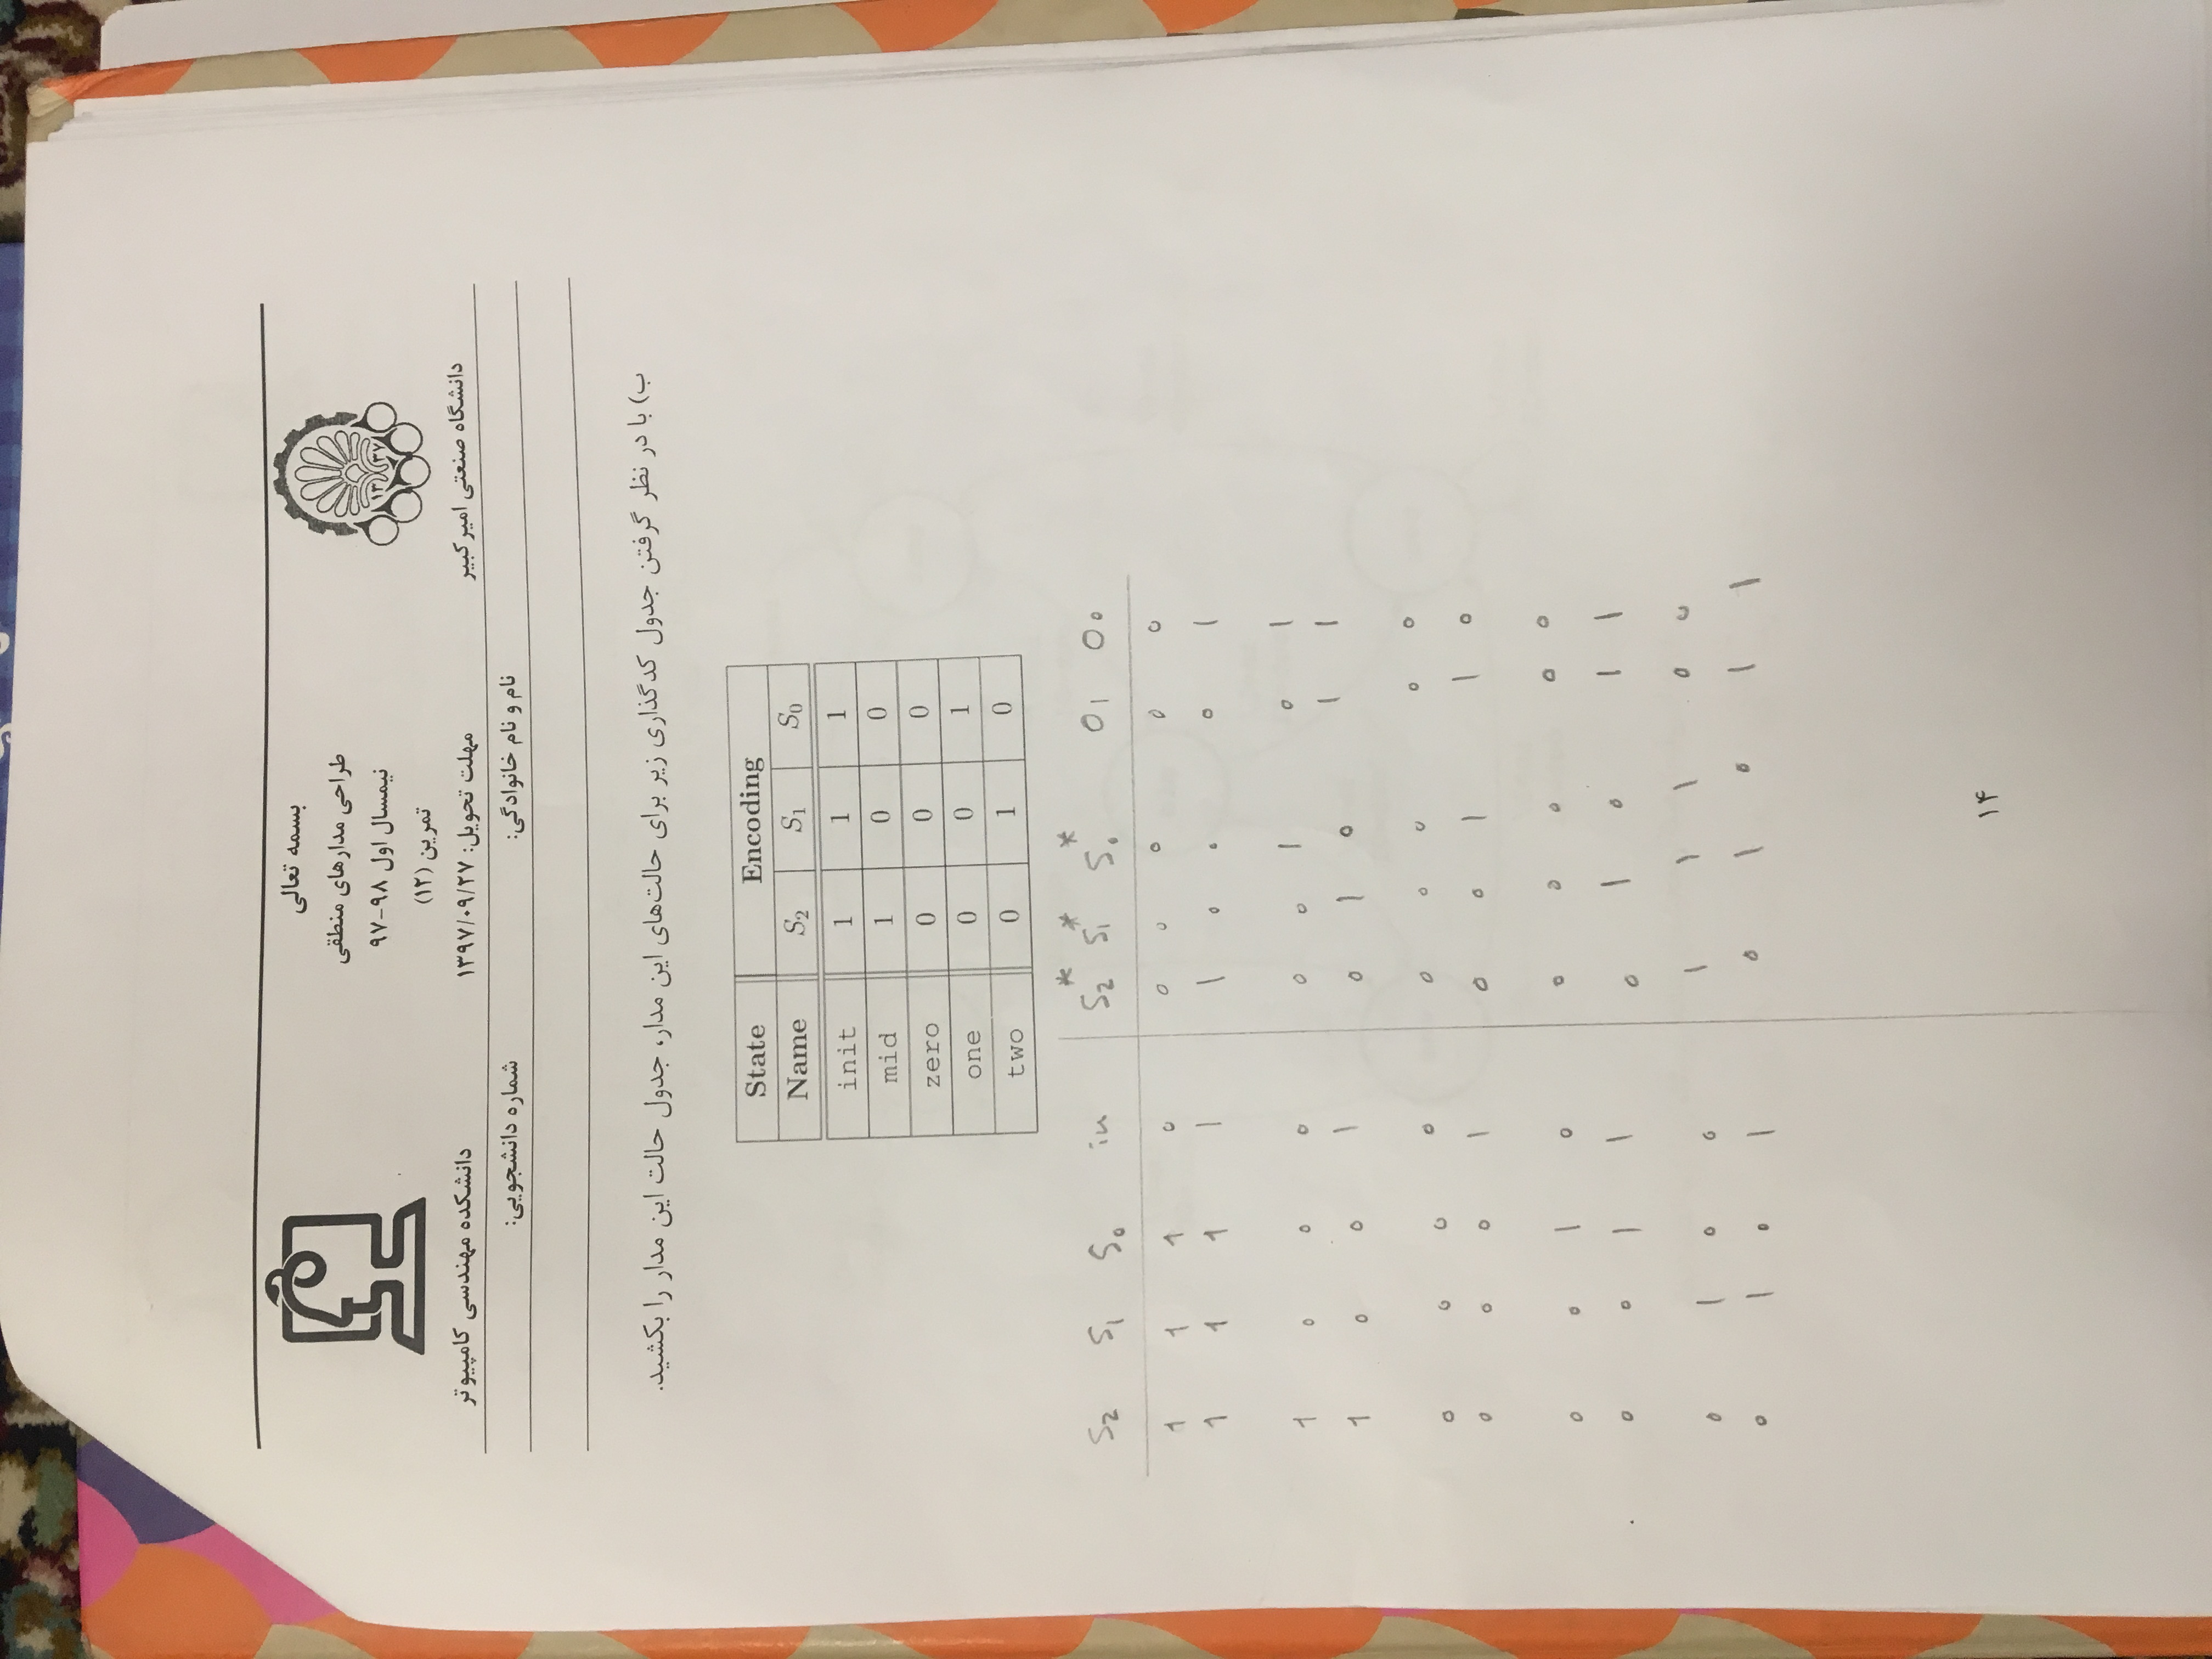 بسمه تعالی
طراحی مدارهای منطقی
نیمسال اول ۹۸-۹۷
تمرین (۱۲)
۱۳ ۳۷
دانشگاه صنعتی امیرکبیر مهلت تحویل: ۱۳۹۷/۰۹/۲۷ دانشکده مهندسی کامپیوتر
نام و نام خانوادگی: شماره دانشجویی:
ب) با در نظر گرفتن جدول کدگذاری زیر برای حالت‌های این مدار، جدول حالت این مدار را بکشید.
State Encoding
Name S2 S1 S0
init 1 1 1
mid 1 0 0
zero 0 0 0
one 0 0 1
two 0 1 0
S2 S1 S0 in S2* S1* S0* O1 O0
1 1 1 0 0 0 0 0 0
1 1 1 1 1 0 0 0 1
1 0 0 0 0 0 1 0 1
1 0 0 1 0 1 0 1 1
0 0 0 0 0 0 0 0 0
0 0 0 1 0 0 1 1 0
0 0 1 0 0 0 0 0 0
0 0 1 1 0 1 0 1 1
0 1 0 0 1 1 1 0 0
0 1 0 1 0 1 0 1 1
۱۴